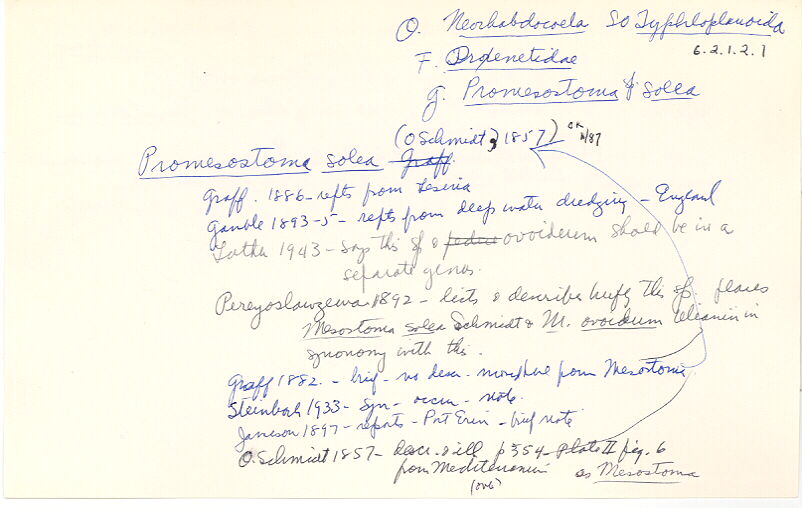 O. Neorhabdocoela SO Typhloplanoida
6.2.1.2.1
F.
g. Promesostoma solea
(O Schmidt, 1857) 4/87
Promesostoma solea Graff.
Graff. 1886 - repts from Lesina
Gamble 1893-5 - repts from deep water dredging - England
Luther 1943 - says this sp & pedice ovoideum should be in a
separate genus.
Pereyaslawzewa 1892 - lists & describes briefly this sp. places
Mesostoma solea Schmidt & M. ovoideum Uljanin in
synonomy with this.
Graff 1882. - brief - no descr. - moves here from Mesostoma
Steinbock 1933 - Syn - occurr - note.
Jameson 1897 - reports - Port Erin - brief note
O. Schmidt 1857 - descr. & ill p 354 - Plate II fig. 6
from Mediterranean as Mesostoma